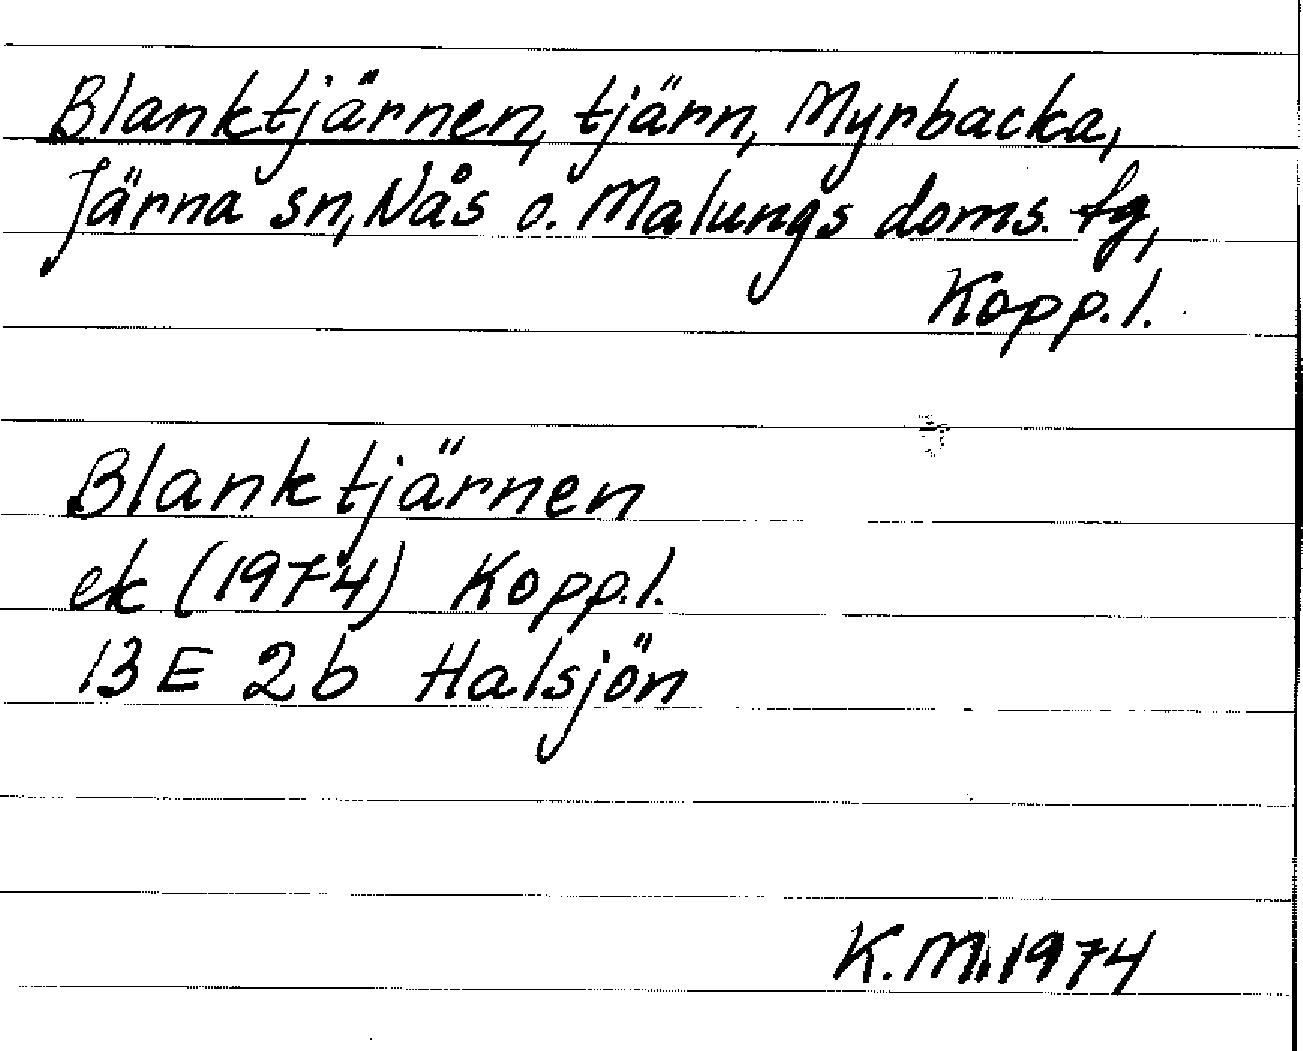 Blanktjärnen, tjärn, Myrbacka,
Järna sn, Nås o. Malungs doms. tg,
Kopp. l.
Blanktjärnen
ek (1974) Kopp. l.
13 E 2b Halsjön
K. M. 1974